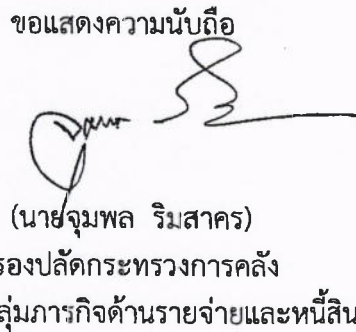 ขอแสดงความนับถือ
(นายจุมพล ริมสาคร)
รองปลัดกระทรวงการคลัง
ลุ่มภารกิจด้านรายจ่ายและหนี้สิน